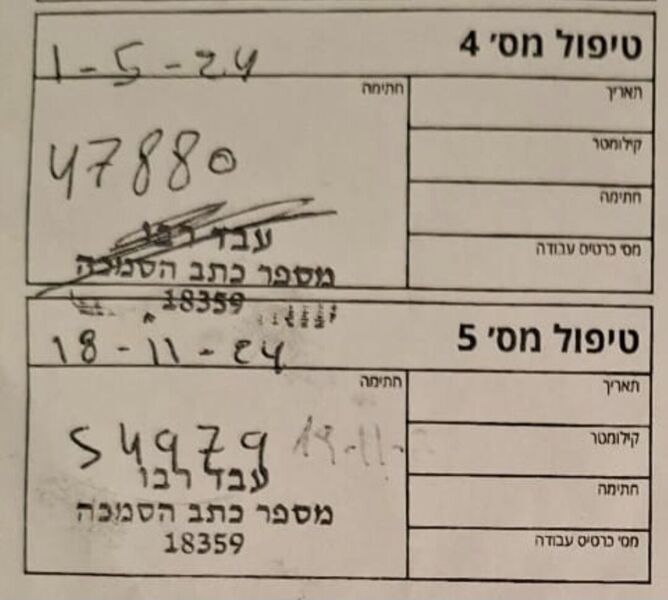 טיפול מס׳ 4
1-5-24
תאריך
קילומטר
חתימה
מס׳ כרטיס עבודה
חתימה
47880
עבד רבו
מספר כתב הסמכה
18359
טיפול מס׳ 5
18-11-24
תאריך
קילומטר
חתימה
מס׳ כרטיס עבודה
חתימה
54979
עבד רבו
מספר כתב הסמכה
18359